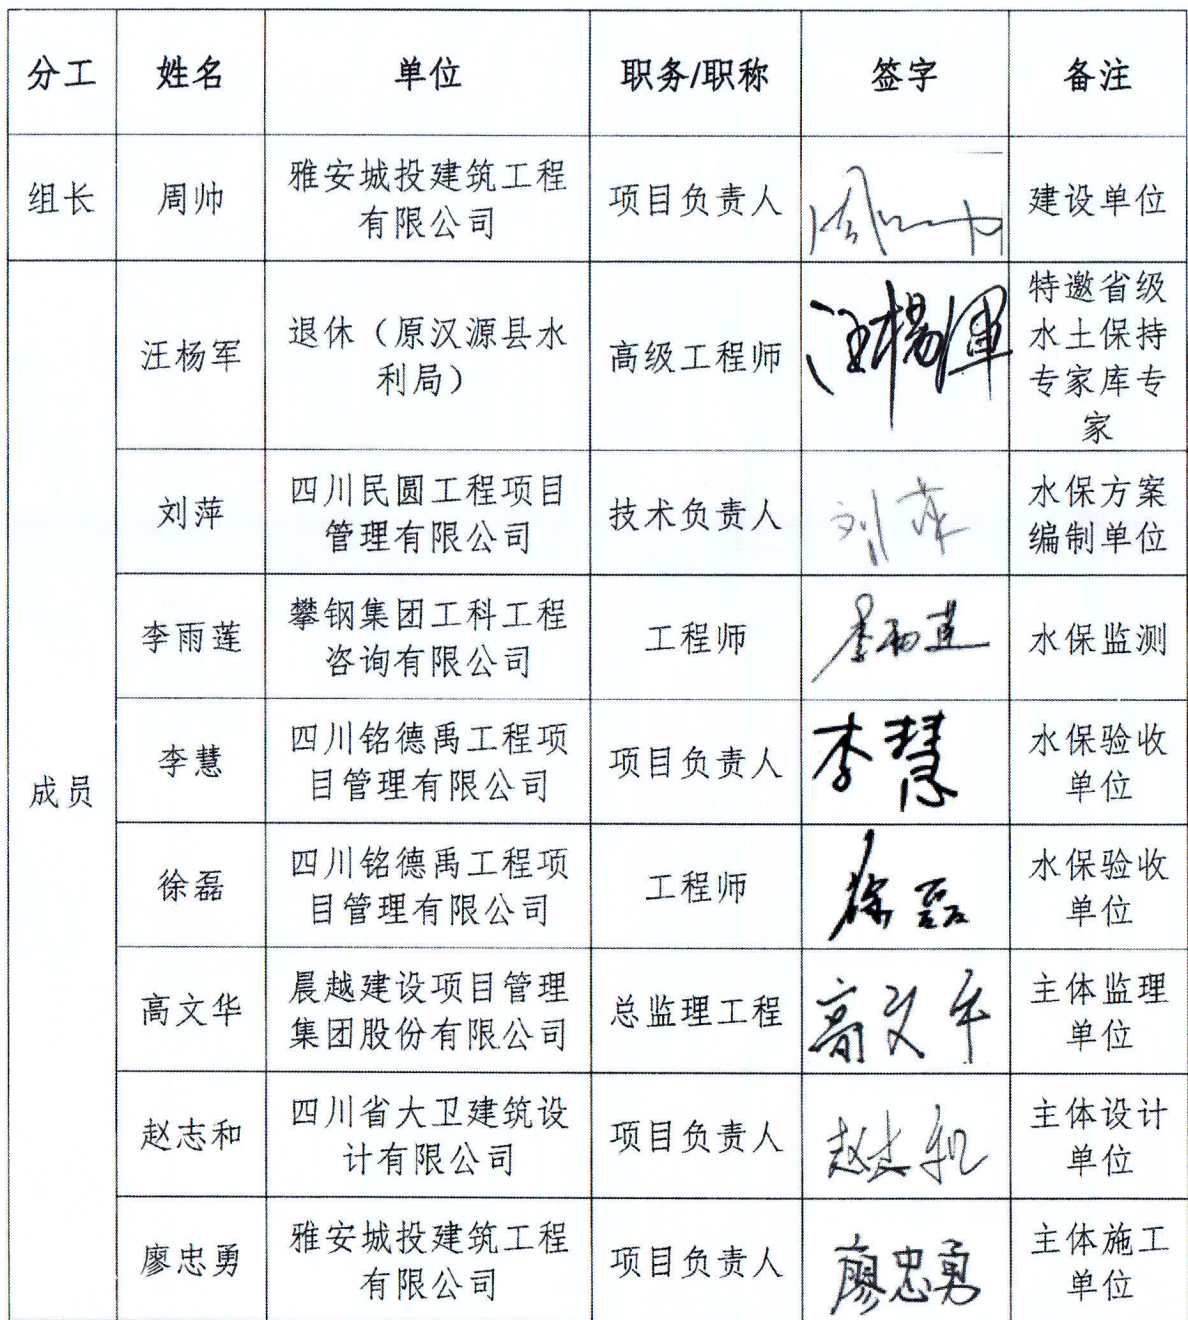 分工 姓名 单位 职务/职称 签字 备注
组长 周帅 雅安城投建筑工程
有限公司 项目负责人 建设单位
成员
汪杨军 退休（原汉源县水
利局） 高级工程师 汪楊軍 特邀省级
水土保持
专家库专
家
刘萍 四川民圆工程项目
管理有限公司 技术负责人 刘萍 水保方案
编制单位
李雨莲 攀钢集团工科工程
咨询有限公司 工程师 李雨莲 水保监测
李慧 四川铭德禹工程项
目管理有限公司 项目负责人 李慧 水保验收
单位
徐磊 四川铭德禹工程项
目管理有限公司 工程师 徐磊 水保验收
单位
高文华 晨越建设项目管理
集团股份有限公司 总监理工程 高文华 主体监理
单位
赵志和 四川省大卫建筑设
计有限公司 项目负责人 赵志和 主体设计
单位
廖忠勇 雅安城投建筑工程
有限公司 项目负责人 廖忠勇 主体施工
单位